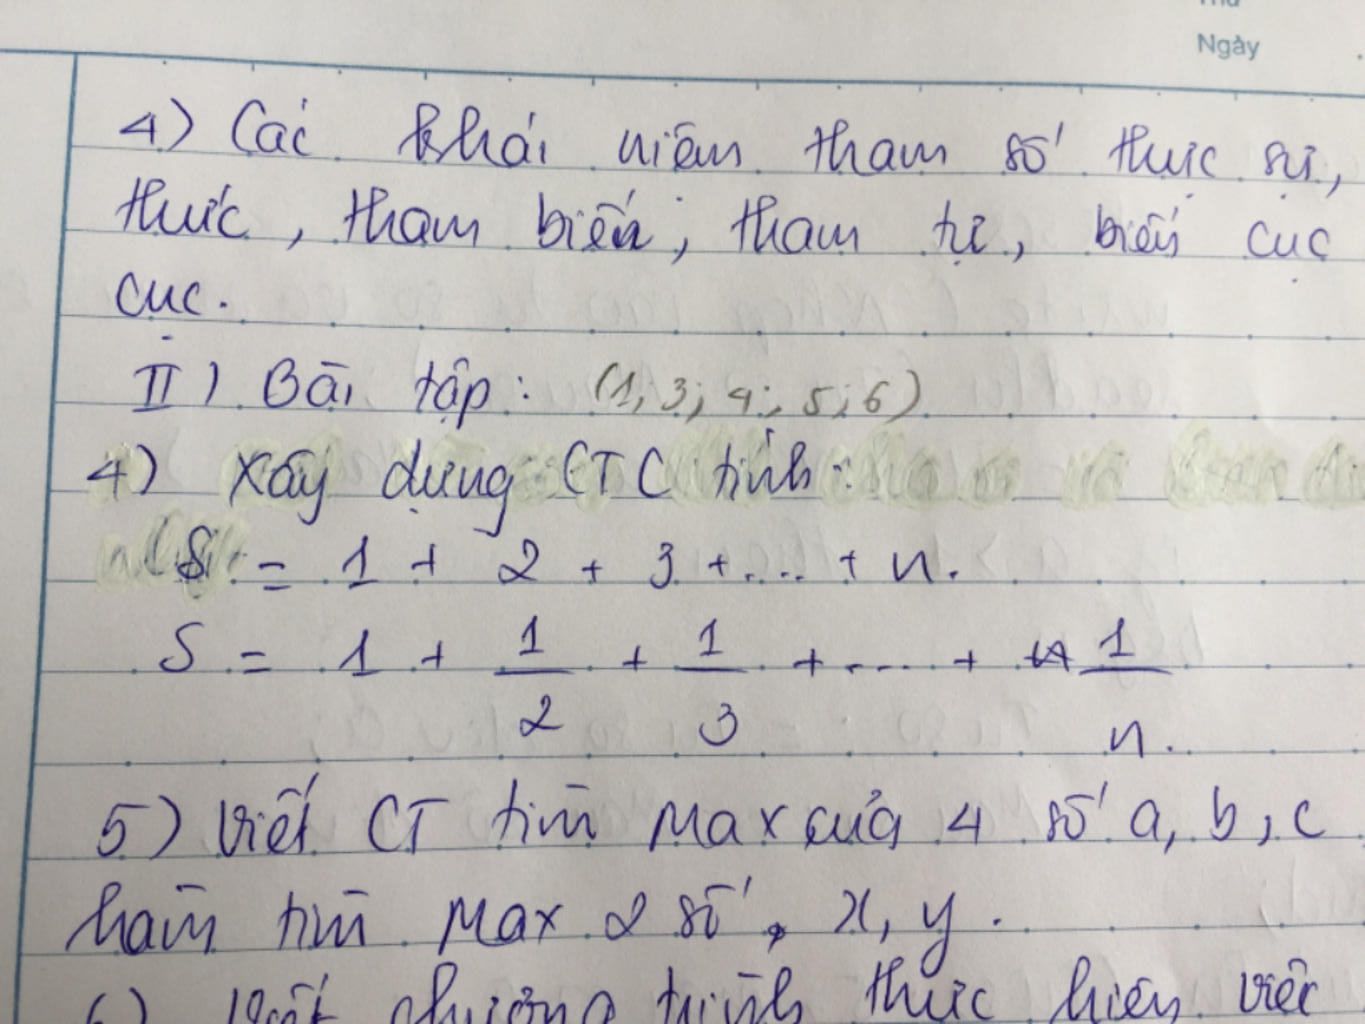 Ngày
4) Các khái niệm tham số thực sự,
thức, tham biến, tham trị, biến cục
cục.
II) Bài tập: (1, 3; 4; 5; 6)
4) Xây dựng CTC tính:
S = 1 + 2 + 3 + ... + n.
S = 1 + 1/2 + 1/3 + ... + 1/n.
5) Viết CT tìm Max của 4 số a, b, c
hàm tìm Max 2 số, x, y.
6) Viết chương trình thực hiện việc